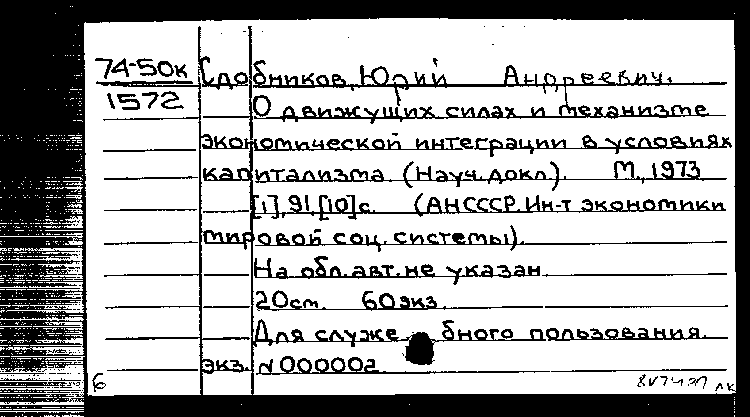 74-50к Сдобников, Юрий Андреевич.
1572 О движущих силах и механизме
экономической интеграции в условиях
капитализма. (Науч. докл.). М., 1973
[1], 91, [10] с. (АН СССР. Ин-т экономики
мировой соц. системы).
На обл. авт. не указан.
20 см. 60 экз.
Для служебного пользования.
экз. N 000002
6